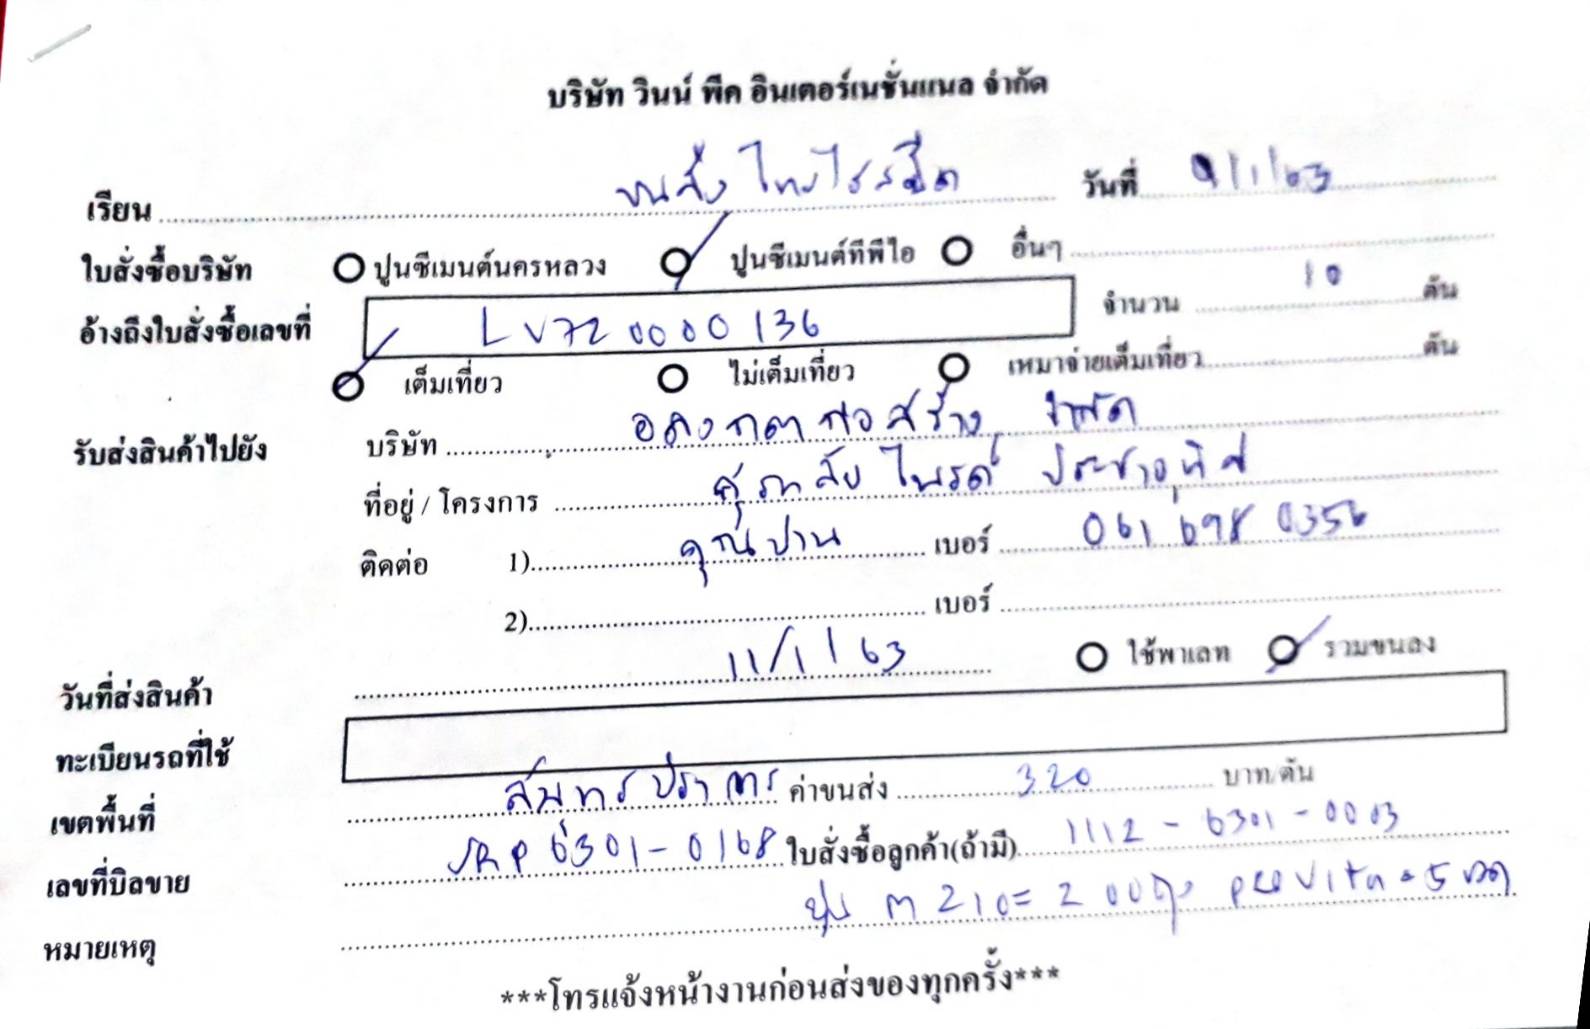 บริษัท วินน์ พีค อินเตอร์เนชั่นแนล จำกัด
เรียน ขนส่ง วันที่ 9/1/63
ใบสั่งซื้อบริษัท ปูนซีเมนต์นครหลวง ปูนซีเมนต์ทีพีไอ อื่นๆ
อ้างถึงใบสั่งซื้อเลขที่ LV720000136 จำนวน 10 ตัน
เต็มเที่ยว ไม่เต็มเที่ยว เหมาจ่ายเต็มเที่ยว ตัน
รับส่งสินค้าไปยัง บริษัท ก่อสร้าง จำกัด
ที่อยู่ / โครงการ ศุภาลัย ไพรด์ ประชาอุทิศ
ติดต่อ 1) คุณปาน เบอร์ 061 698 0356
2) เบอร์
วันที่ส่งสินค้า 11/1/63 ใช้พาเลท รวมขนลง
ทะเบียนรถที่ใช้
เขตพื้นที่ สมุทรปราการ ค่าขนส่ง 320 บาท/ตัน
เลขที่บิลขาย 6301-0168 ใบสั่งซื้อลูกค้า(ถ้ามี) 1112-6301-0003
หมายเหตุ ปูน m210=200ถุง
***โทรแจ้งหน้างานก่อนส่งของทุกครั้ง***